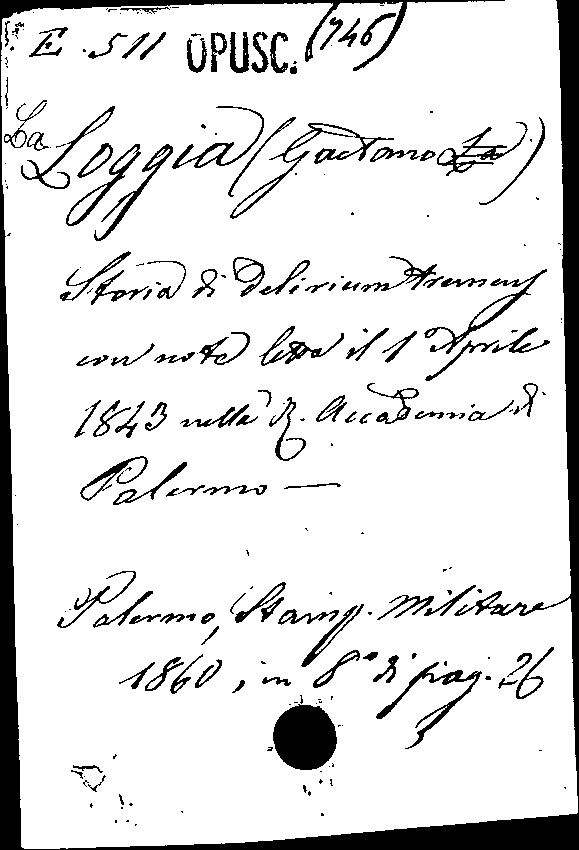 E. 511 OPUSC. (746)
La Loggia (Gaetano La)
Storia di Delirium tremens
con note letta il 1° Aprile
1843 nella R. Accademia di
Palermo —
Palermo, Stamp. Militare
1860, in 8° di pag. 26